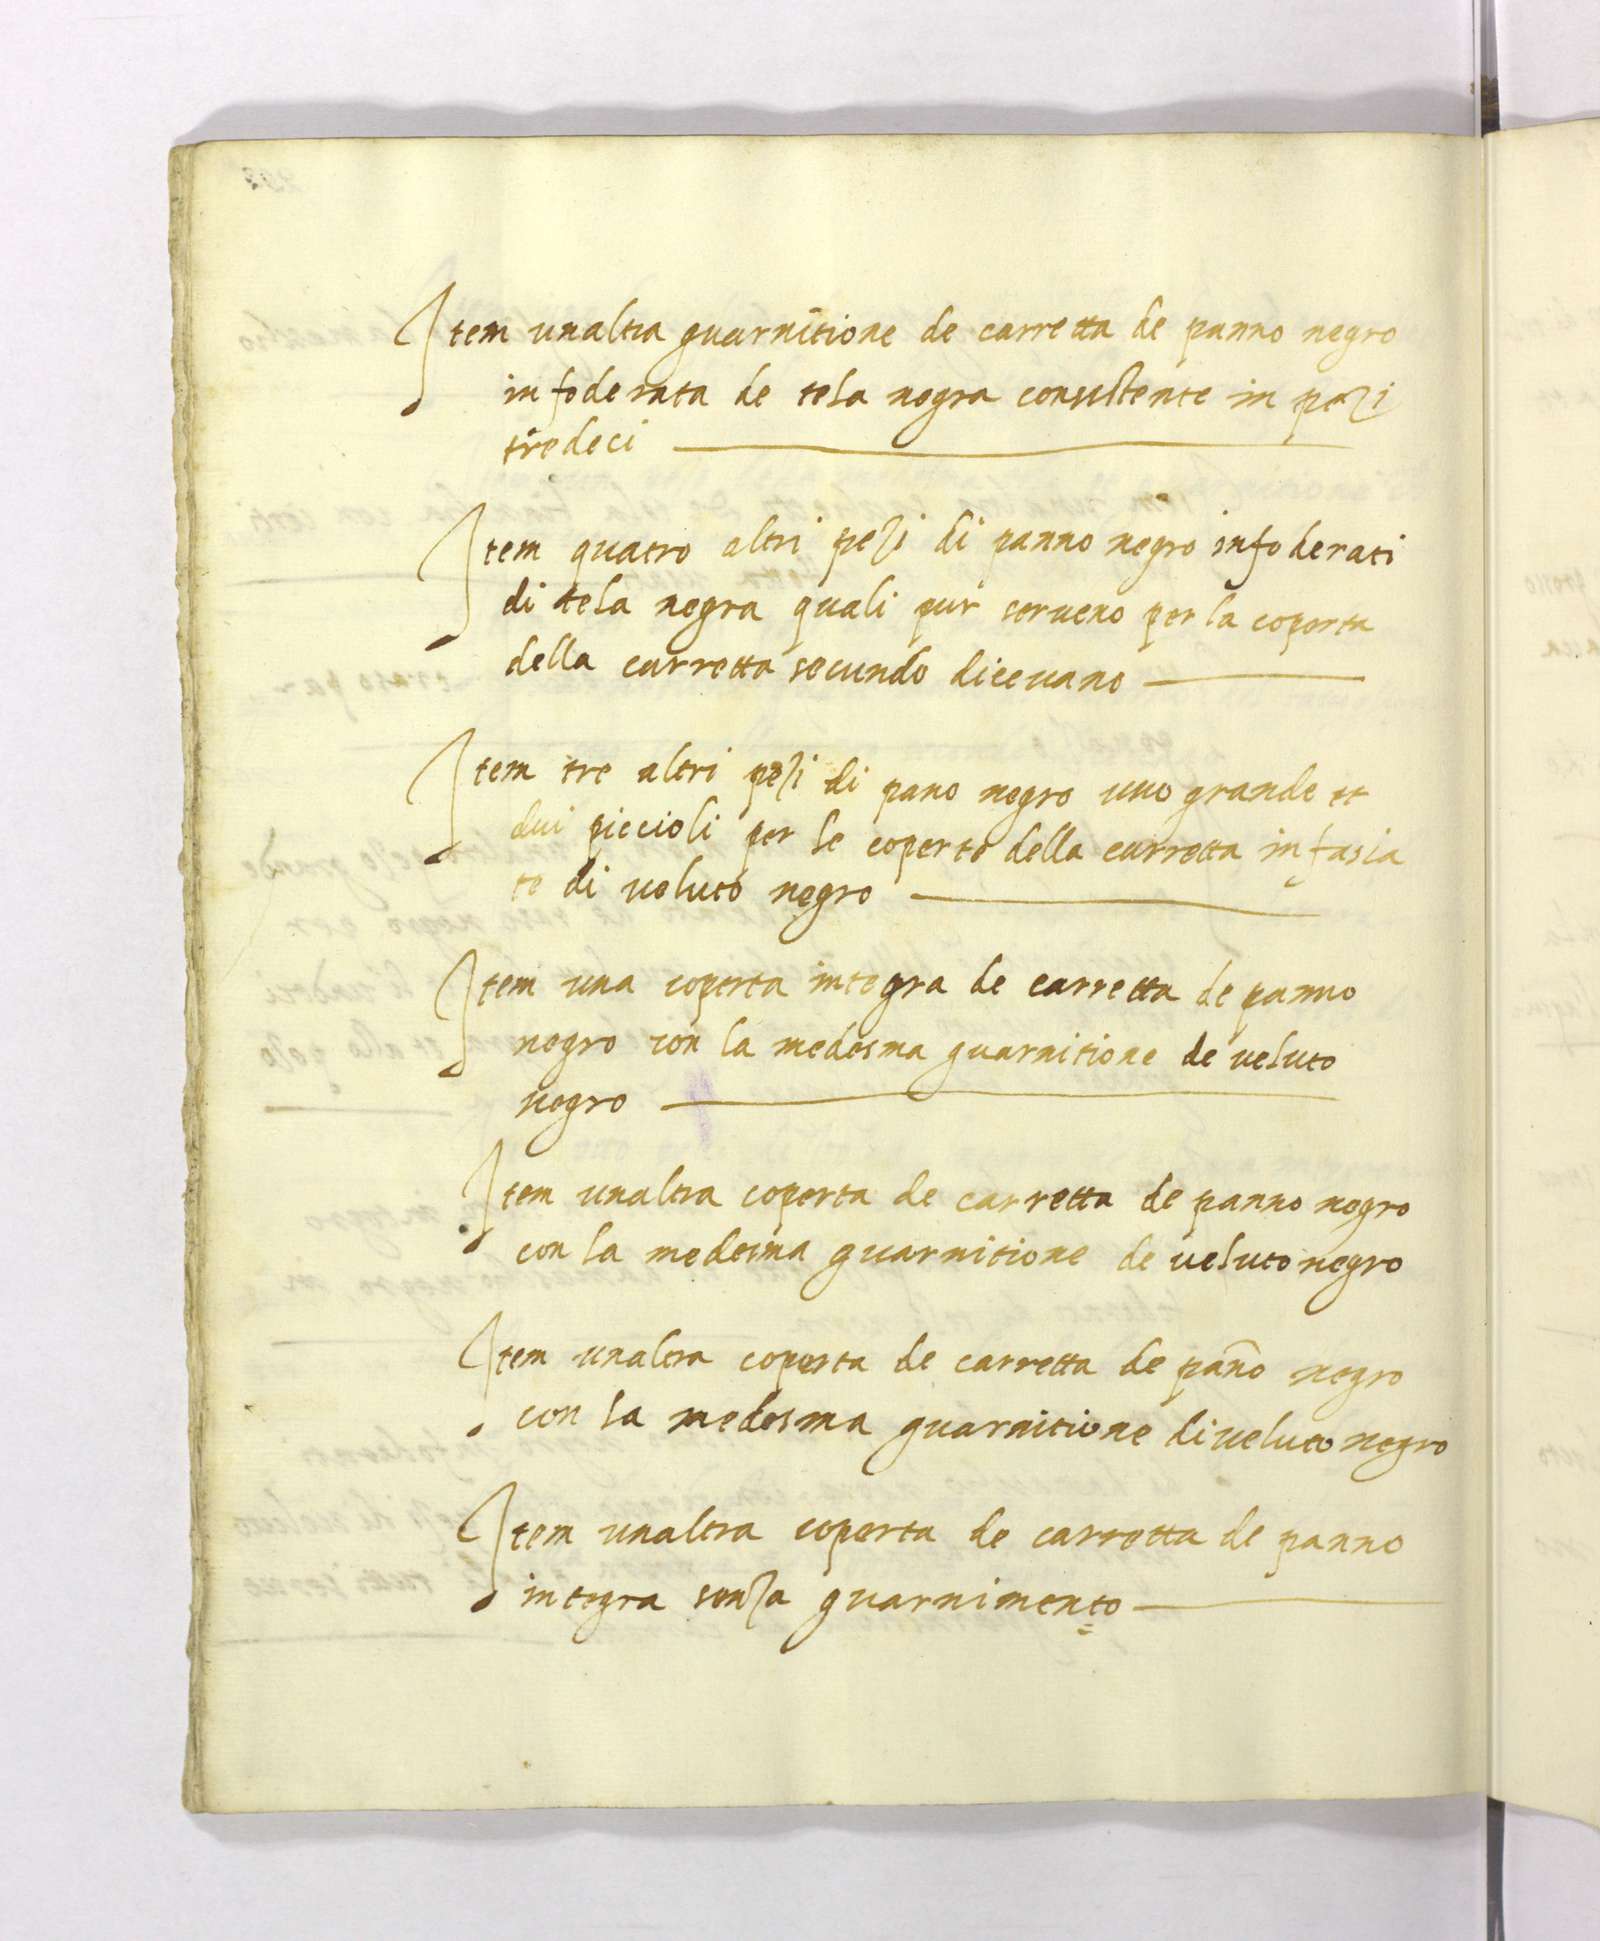 Item unaltra guarnitione de carretta de panno negro
infoderata de tela negra consistente in pezi
tredeci
Item quatro altri pezi di panno negro infoderati
di tela negra quali pur serueno per la coperta
della carretta secundo diceuano
Item tre altri pezi di pano negro uno grande et
dui piccioli per le coperte della carretta infasia
te di veluto negro
Item una coperta integra de carretta de panno
negro con la medesma guarnitione de veluto
negro
Item unaltra coperta de carretta de panno negro
con la medesma guarnitione de veluto negro
Item unaltra coperta de carretta de pan̄o negro
con la medesma guarnitione di veluto negro
Item unaltra coperta de carretta de panno
integra senza guarnimento